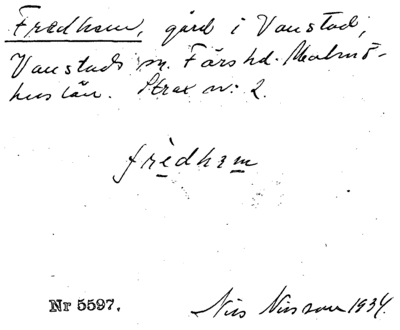 Fredhem, gård i Vanstad,
Vanstads sn. Färs hd. Malmö-
hus län. Strax n: 2.
frèdhem
Nr 5597.
Nils Nilsson 1934.